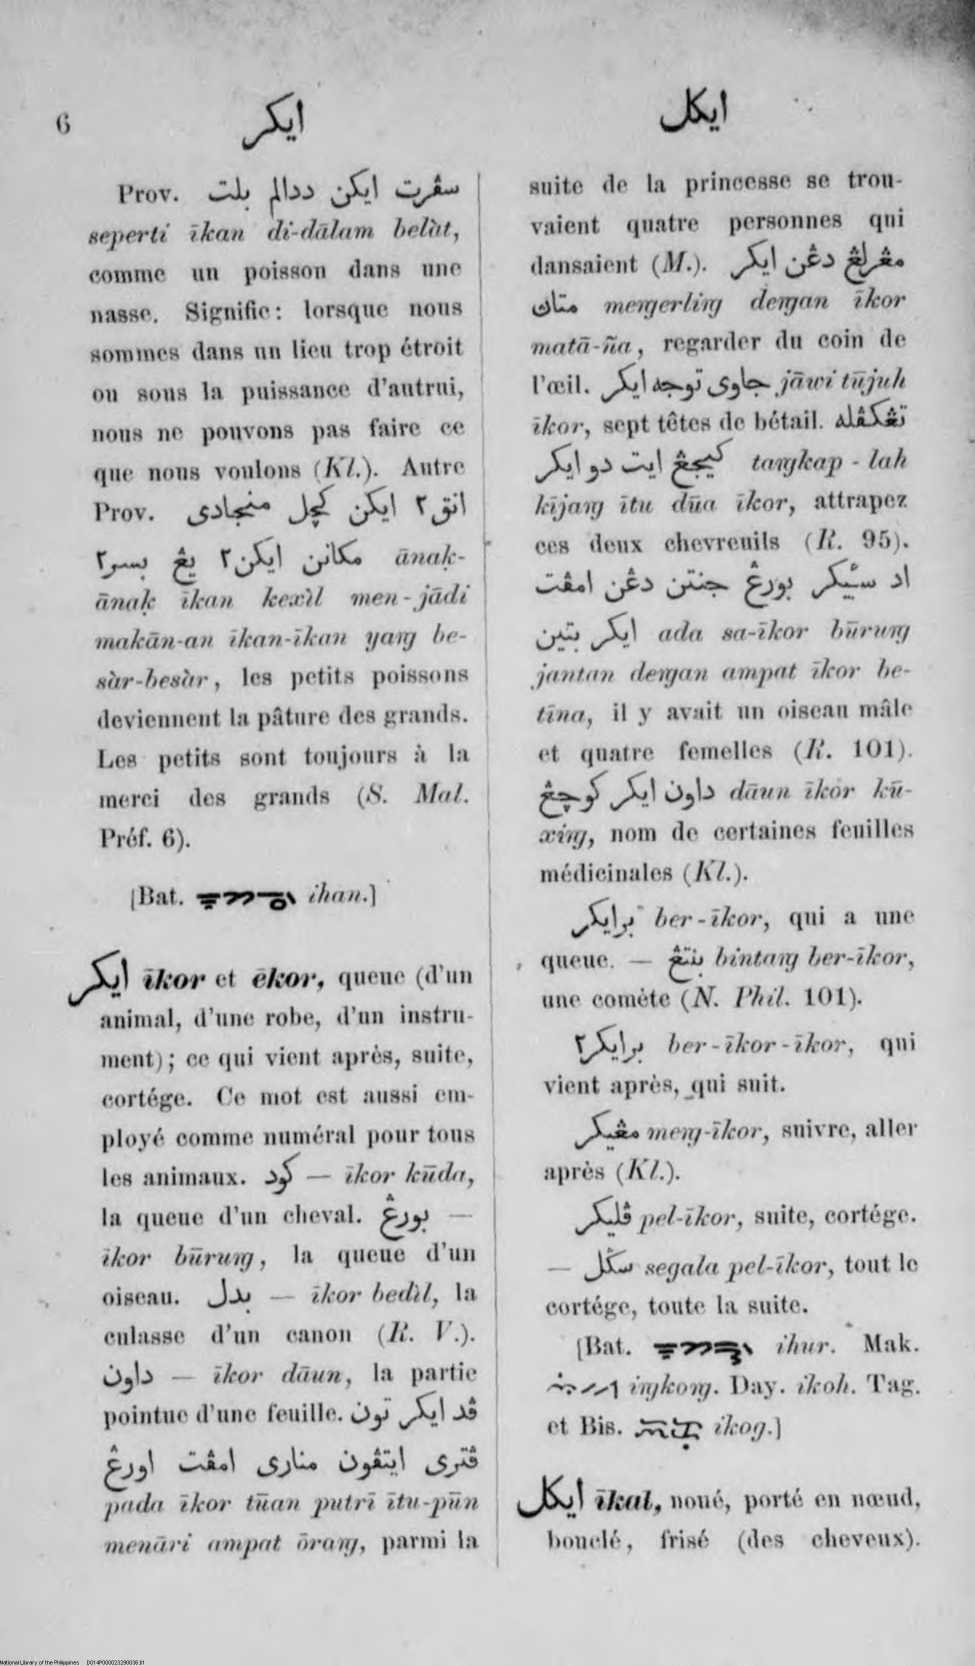 6
ايكر
ايكل
Prov. سڤرت ايكن ددالم بلت
seperti īkan di-dālam belàt,
comme un poisson dans une
nasse. Signifie: lorsque nous
sommes dans un lieu trop étroit
ou sous la puissance d'autrui,
nous ne pouvons pas faire ce
que nous voulons (Kl.). Autre
Prov. انق٢ ايكن كچل منجادى
مكانن ايكن٢ يڠ بسر٢ ānaḳ-
ānaḳ īkan kexìl men-jādi
makān-an īkan-īkan yaŋ be-
sàr-besàr, les petits poissons
deviennent la pâture des grands.
Les petits sont toujours à la
merci des grands (S. Mal.
Préf. 6).
[Bat. ihan.]
ايكر īkor et ēkor, queue (d'un
animal, d'une robe, d'un instru-
ment); ce qui vient après, suite,
cortége. Ce mot est aussi em-
ployé comme numéral pour tous
les animaux. كود — īkor kūda,
la queue d'un cheval. بورڠ —
īkor būruŋ, la queue d'un
oiseau. بدل — īkor bedìl, la
culasse d'un canon (R. V.).
داون — īkor dāun, la partie
pointue d'une feuille. ڤد ايكر تون
ڤترى ايتڤون منارى امڤت اورڠ
pada īkor tūan putrī ītu-pūn
menāri ampat ōraŋ, parmi la
suite de la princesse se trou-
vaient quatre personnes qui
dansaient (M.). مڠرلڠ دڠن ايكر
متاڽ meŋerliŋ deŋan īkor
matā-ña, regarder du coin de
l'œil. جاوى توجه ايكر jāwi tūjuh
īkor, sept têtes de bétail. تڠكڤله
كيجڠ ايت دو ايكر taŋkap-lah
kījaŋ ītu dūa īkor, attrapez
ces deux chevreuils (R. 95).
اد سئيكر بورڠ جنتن دڠن امڤت
ايكر بتين ada sa-īkor būruŋ
jantan deŋan ampat īkor be-
tīna, il y avait un oiseau mâle
et quatre femelles (R. 101).
داون ايكر كوچڠ dāun īkor kū-
xiŋ, nom de certaines feuilles
médicinales (Kl.).
برايكر ber-īkor, qui a une
queue. — بنتڠ bintaŋ ber-īkor,
une comète (N. Phil. 101).
برايكر٢ ber-īkor-īkor, qui
vient après, qui suit.
مڠيكر meŋ-īkor, suivre, aller
après (Kl.).
ڤليكر pel-īkor, suite, cortége.
— سڬل segala pel-īkor, tout le
cortége, toute la suite.
[Bat. ihur. Mak.
iŋkoŋ. Day. ikoh. Tag.
et Bis. ikog.]
ايكل īkal, noué, porté en nœud,
bouclé, frisé (des cheveux).
National Library of the Philippines